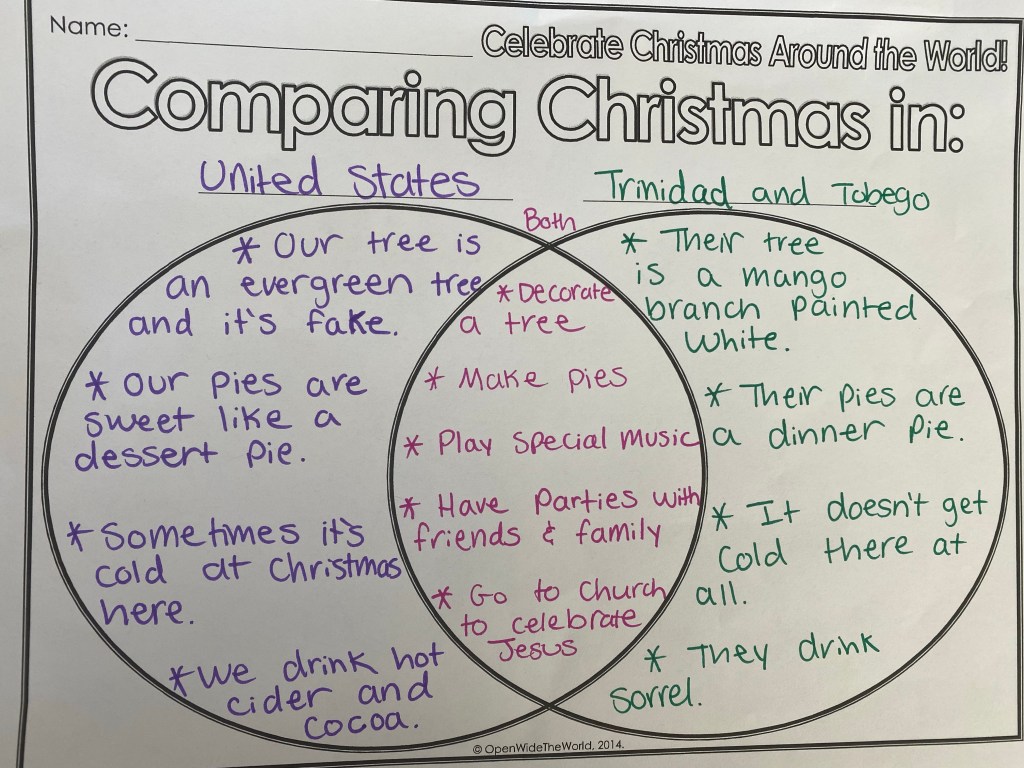 Name:
Celebrate Christmas Around the World!
Comparing Christmas in:
United States
Trinidad and Tobego
Both
* Our tree is
an evergreen tree
and it's fake.
* Our pies are
sweet like a
dessert pie.
* Sometimes it's
cold at Christmas
here.
* We drink hot
cider and
cocoa.
* Decorate
a tree
* Make pies
* Play special music
* Have parties with
friends & family
* Go to Church
to celebrate
Jesus
* Their tree
is a mango
branch painted
white.
* Their pies are
a dinner pie.
* It doesn't get
cold there at
all.
* They drink
sorrel.
© OpenWideTheWorld, 2014.